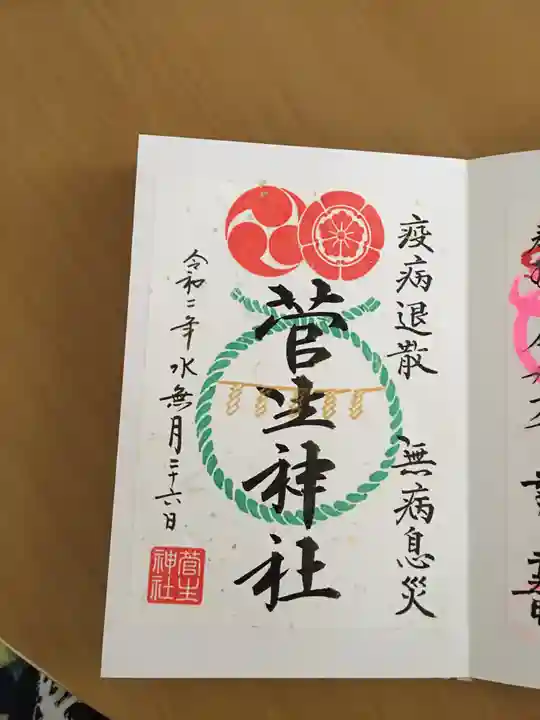 疫病退散 無病息災
菅生神社
令和二年水無月二十六日
菅生
神社